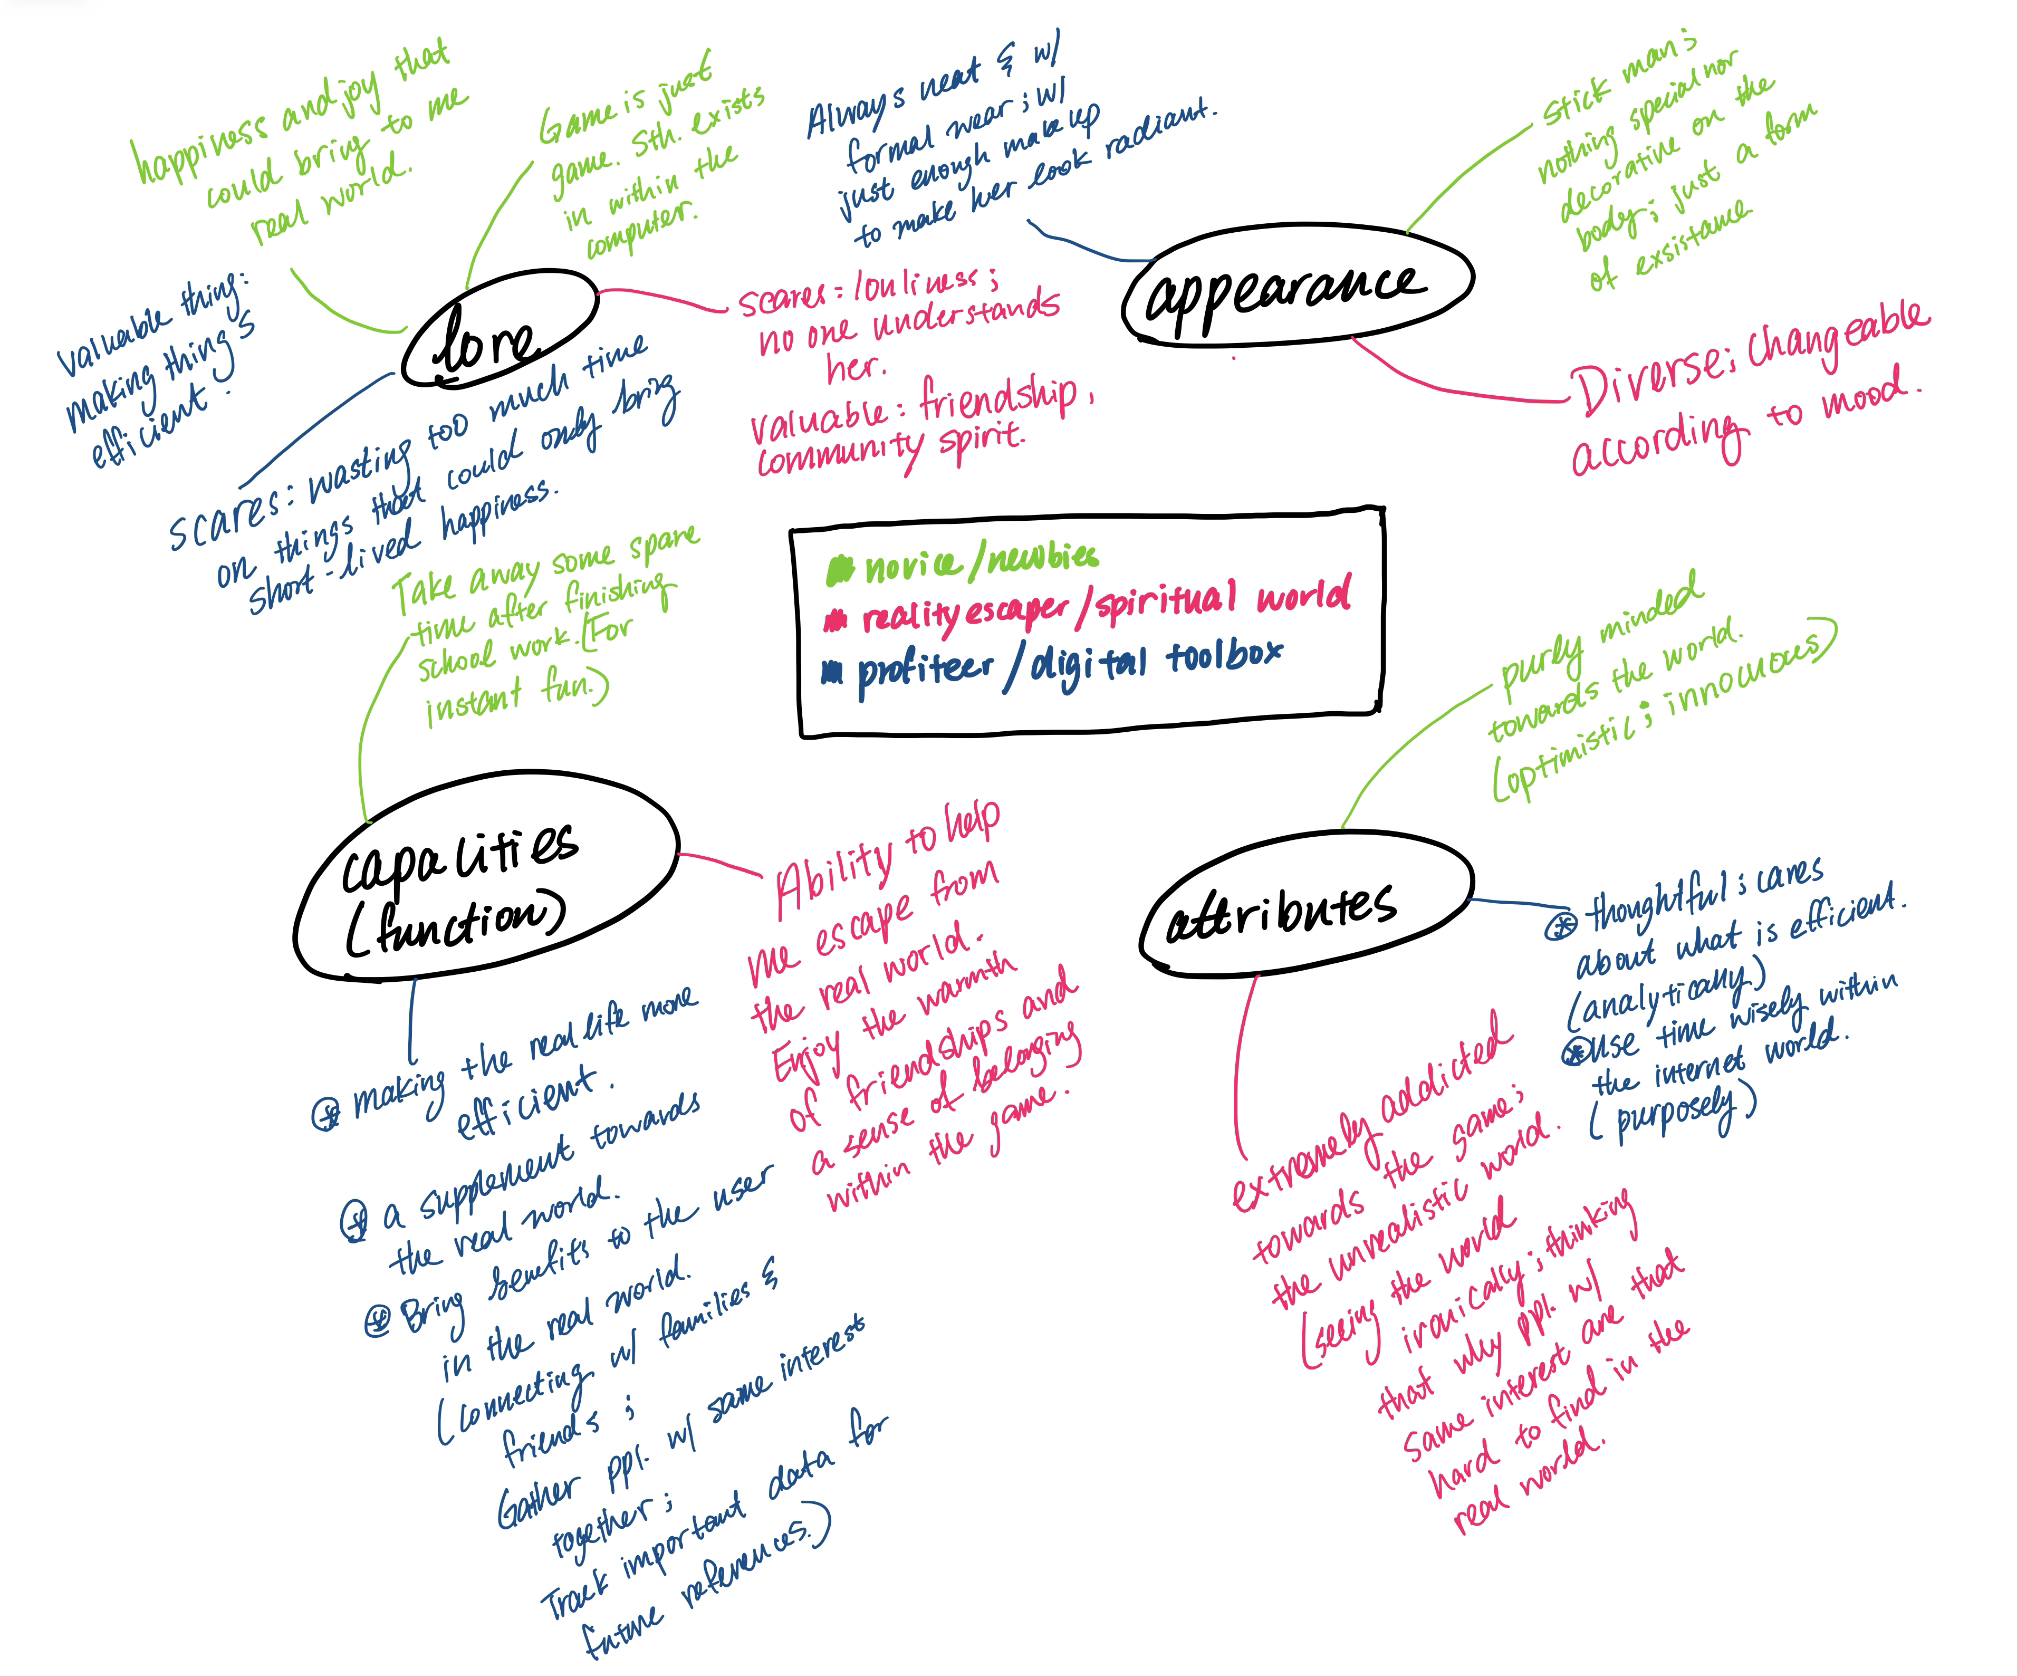 happiness and joy that
could bring to me
real world.
Game is just
game. Sth. exists
in within the
computer.
lore
Valuable thing:
making things
efficient.
scares: wasting too much time
on things that could only bring
short-lived happiness.
scares: lonliness;
no one understands
her.
valuable: friendship,
community spirit.
Always neat & w/
formal wear; w/
just enough makeup
to make her look radiant.
appearance
stick man;
nothing special nor
decorative on the
body; just a form
of exsistance
Diverse; changeable
according to mood.
novice/newbies
reality escaper/spiritual world
profiteer/digital toolbox
Take away some spare
time after finishing
school work. (For
instant fun.)
capalities
(function)
Ability to help
me escape from
the real world.
Enjoy the warmth
of friendships and
a sense of belonging
within the game.
making the real life more
efficient.
a supplement towards
the real world.
Bring benefits to the user
in the real world.
(Connecting w/ families &
friends;
Gather ppl. w/ same interest
together;
Track important data for
future references.)
purly minded
towards the world.
(optimistic; innocuous)
attributes
thoughtful; cares
about what is efficient.
(analytically)
use time wisely within
the internet world.
(purposely)
extremely addicted
towards the game;
the unrealistic world.
(seeing the world
ironically; thinking
that why ppl. w/
same interest are that
hard to find in the
real world.